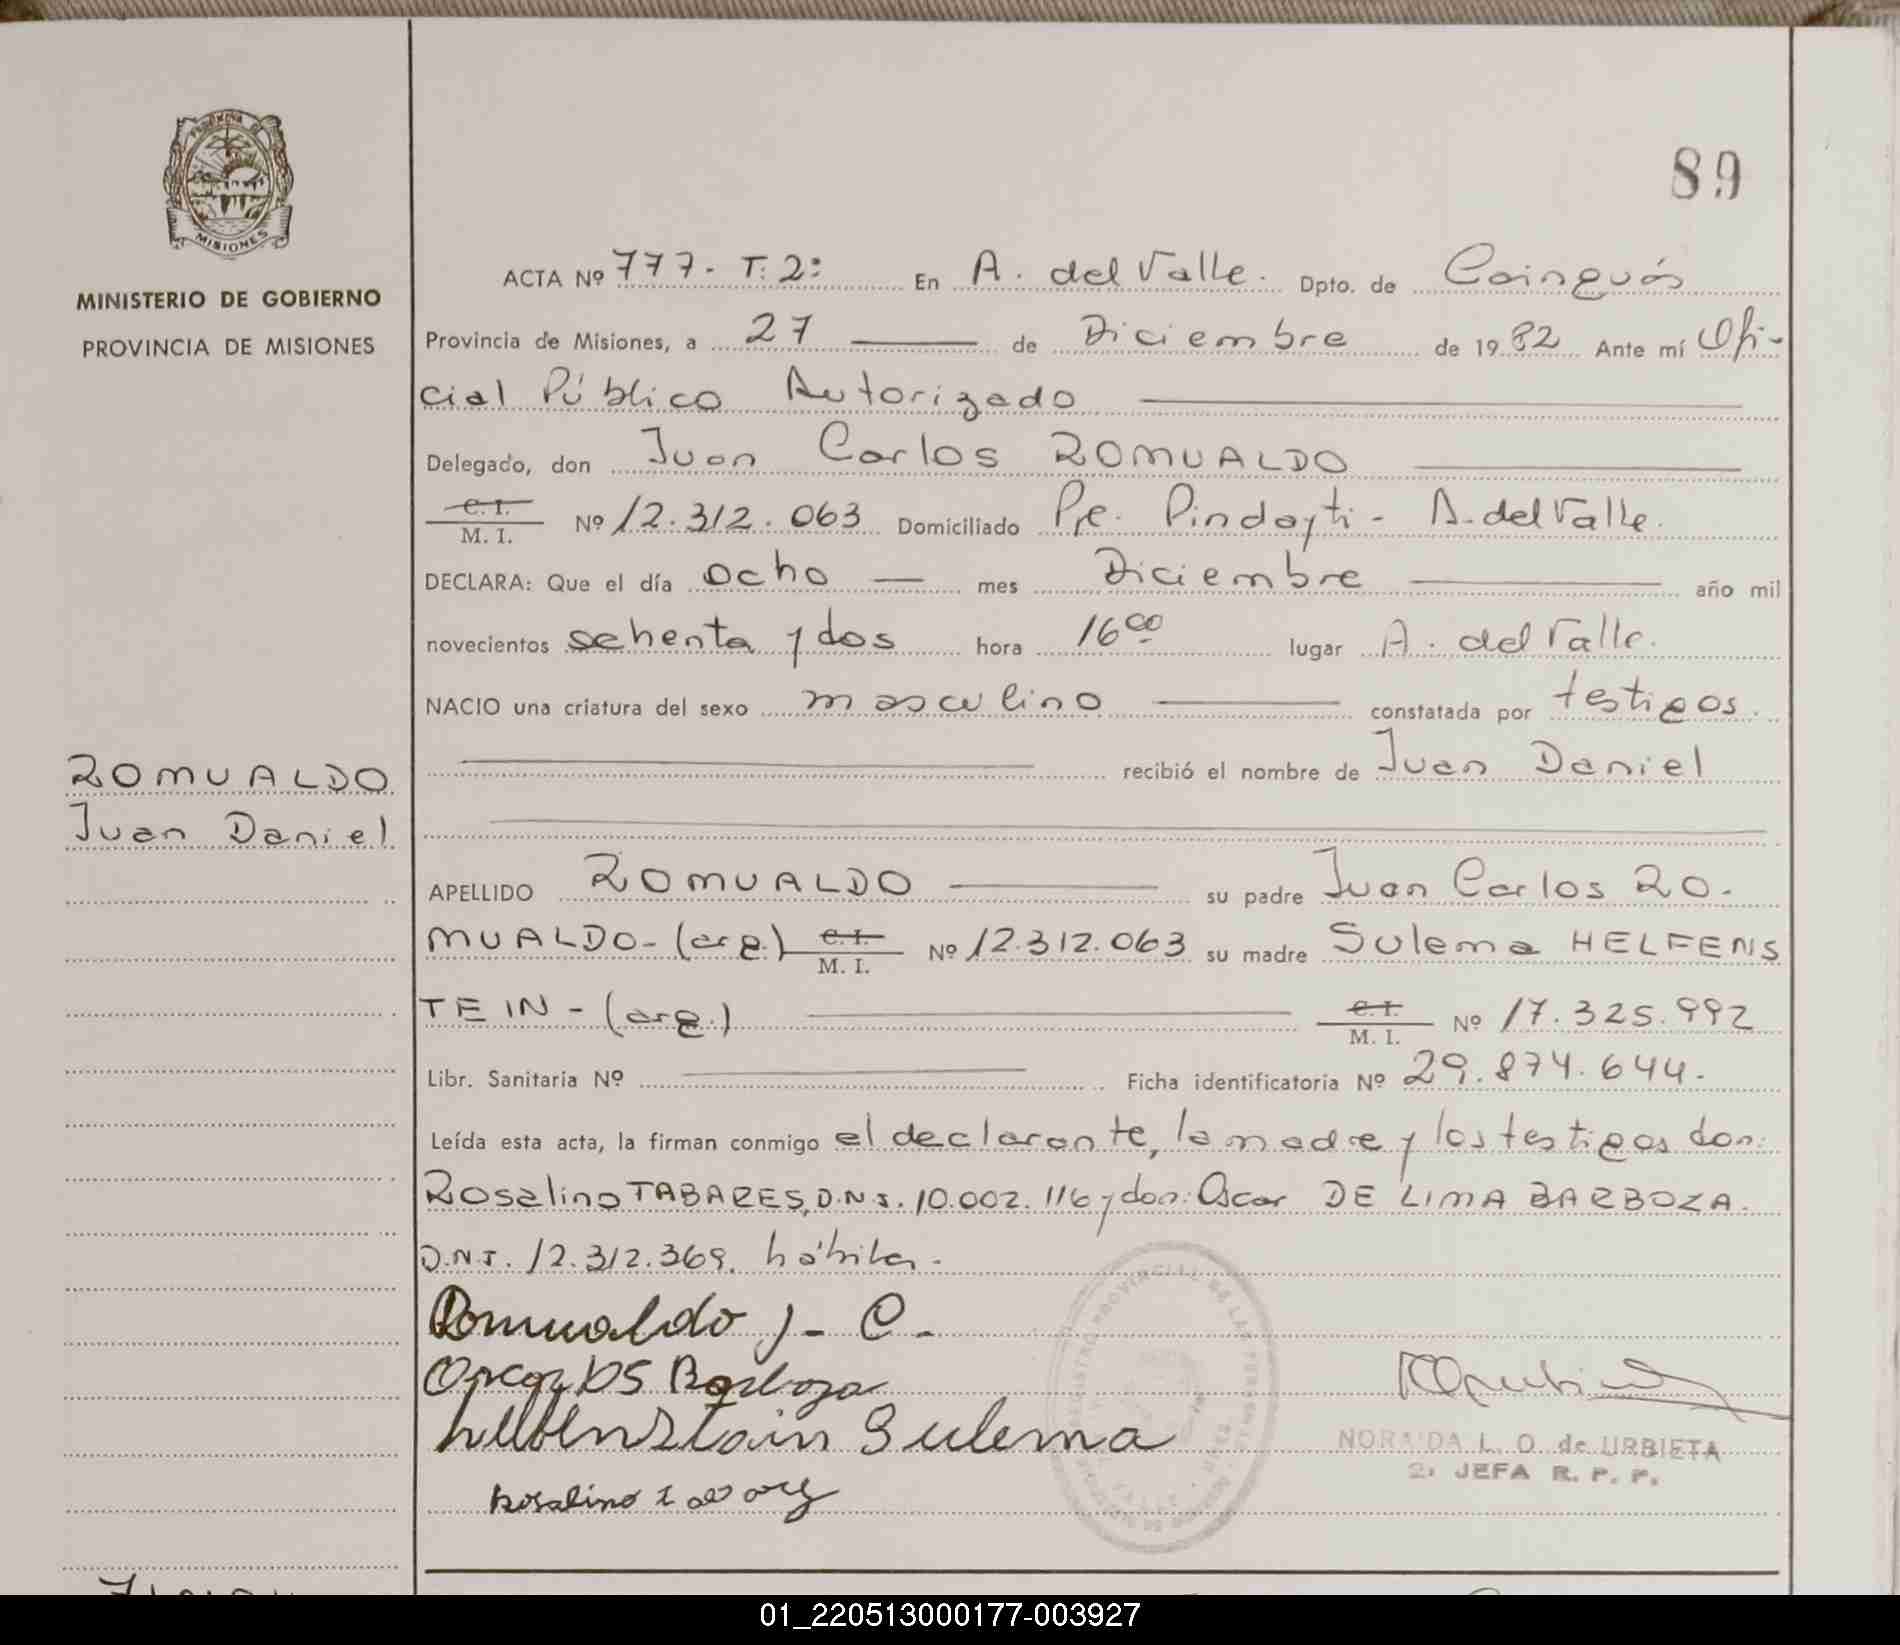 PROVINCIA DE
MISIONES
MINISTERIO DE GOBIERNO
PROVINCIA DE MISIONES
89
ACTA Nº 777- T: 2: En A. del Valle. Dpto. de Cainguás
Provincia de Misiones, a 27 de Diciembre de 1982 Ante mí Ofi-
cial Público Autorizado
Delegado, don Juan Carlos ROMUALDO
C. I.
M. I. Nº 12.312.063 Domiciliado Pje. Pindayti - A. del Valle.
DECLARA: Que el día ocho mes Diciembre año mil
novecientos ochenta y dos hora 16 00 lugar A. del Valle.
NACIO una criatura del sexo masculino constatada por testigos.
recibió el nombre de Juan Daniel
ROMUALDO
Juan Daniel
APELLIDO ROMUALDO su padre Juan Carlos RO-
MUALDO- (arg.) C. I. M. I. Nº 12.312.063 su madre Sulema HELFENS
TEIN - (arg.) C. I. M. I. Nº 17.325.992
Libr. Sanitaria Nº Ficha identificatoria Nº 29.874.644.
Leída esta acta, la firman conmigo el declarante, la madre y los testigos don:
Rosalino TABARES, D.N.I. 10.002.116 y don: Oscar DE LIMA BARBOZA.
D.N.I. 12.312.369. hábiles.
Romualdo J- C-
Oscar DS Barboza
Sulema
Rosalino
NORAIDA L. O. de URBIETA
2: JEFA R. P. P.
REGISTRO PROVINCIAL DE LAS PERSONAS
01_220513000177-003927